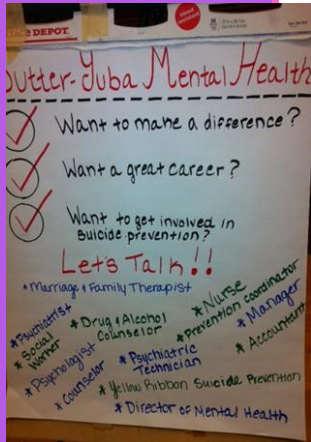 DEPOT
Sutter-Yuba Mental Health
Want to make a difference?
Want a great career?
Want to get involved in
suicide prevention?
Let's Talk!!
* Marriage & Family Therapist
* Psychiatrist
* Social
Worker
* Drug & Alcohol
Counselor
* Nurse
* Prevention coordinator
* Manager
* Accountant
* Psychologist
* Counselor
* Psychiatric
Technician
* Yellow Ribbon Suicide Prevention
* Director of Mental Health